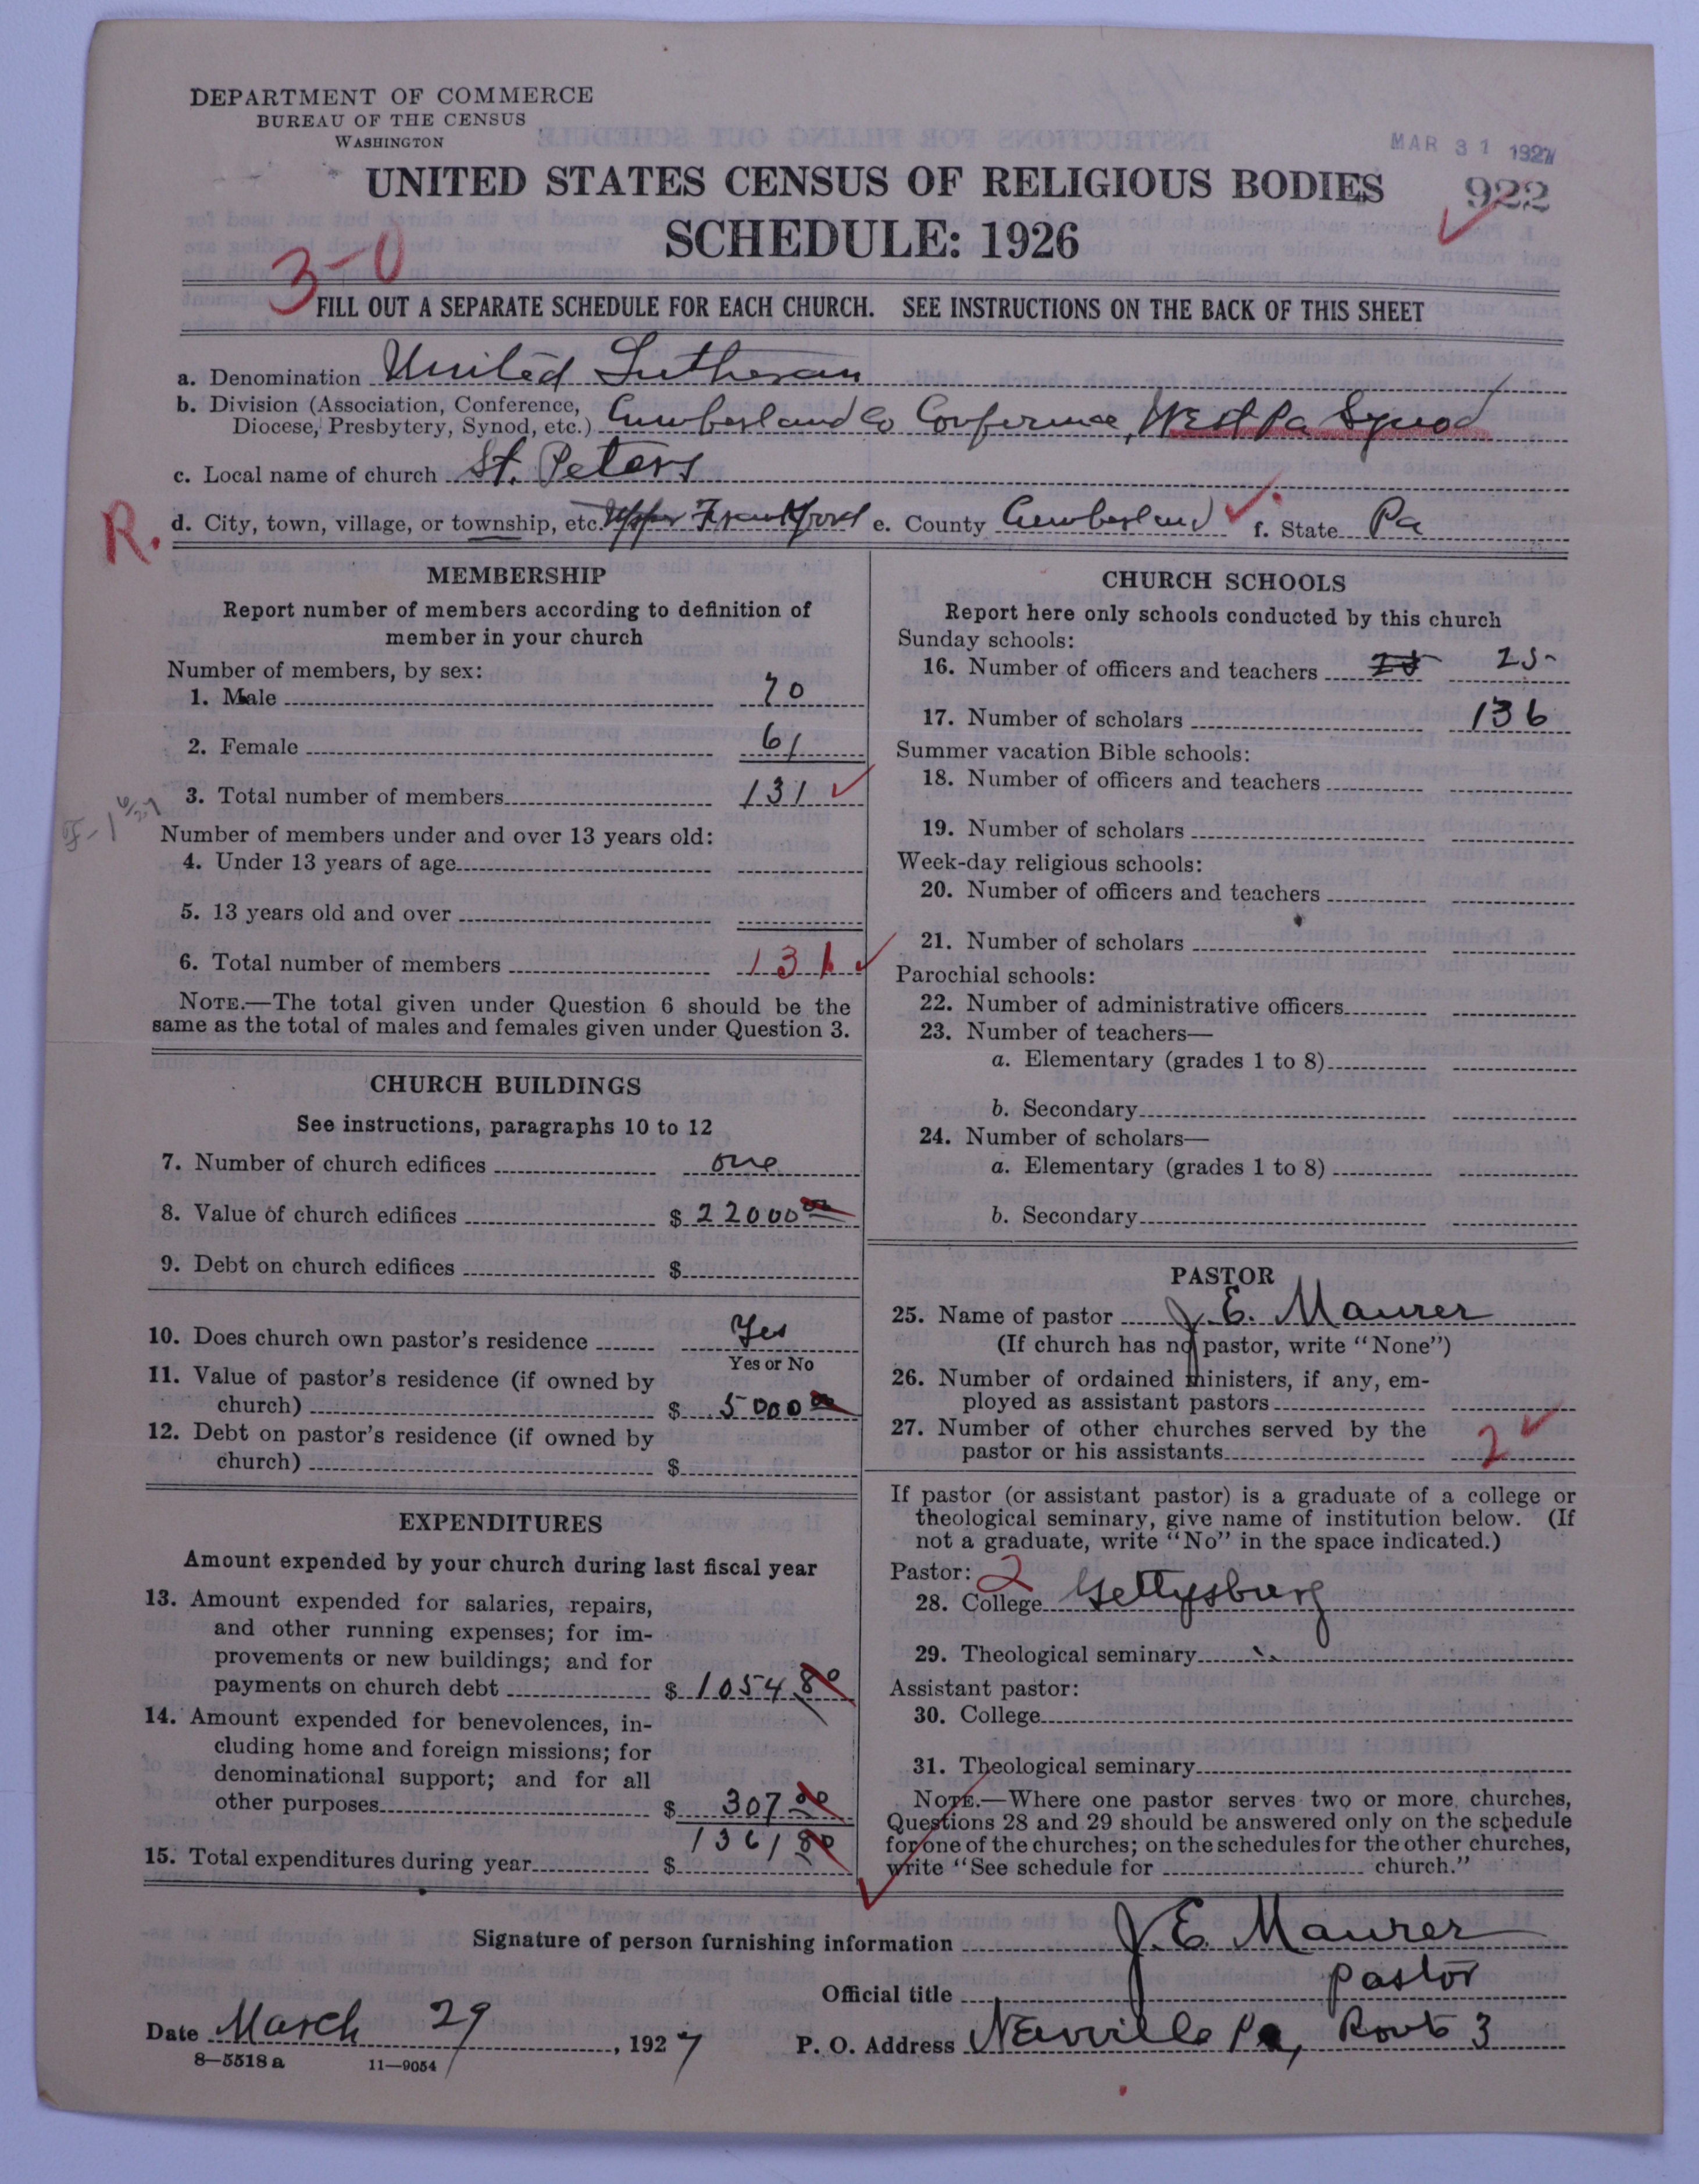 DEPARTMENT OF COMMERCE
BUREAU OF THE CENSUS
WASHINGTON
MAR 31 1927
UNITED STATES CENSUS OF RELIGIOUS BODIES
922
SCHEDULE: 1926
3-0
FILL OUT A SEPARATE SCHEDULE FOR EACH CHURCH. SEE INSTRUCTIONS ON THE BACK OF THIS SHEET
a. Denomination United Lutheran
b. Division (Association, Conference, Diocese, Presbytery, Synod, etc.) Cumberland Co Conference, West Pa Synod
c. Local name of church St. Peters
R. d. City, town, village, or township, etc. Upper Frankford e. County Cumberland f. State Pa
MEMBERSHIP
Report number of members according to definition of
member in your church
Number of members, by sex:
1. Male 70
2. Female 61
3. Total number of members 131
Number of members under and over 13 years old:
4. Under 13 years of age
5. 13 years old and over
6. Total number of members 131
NOTE.—The total given under Question 6 should be the
same as the total of males and females given under Question 3.
CHURCH BUILDINGS
See instructions, paragraphs 10 to 12
7. Number of church edifices one
8. Value of church edifices $ 22000 00
9. Debt on church edifices $
10. Does church own pastor's residence Yes
Yes or No
11. Value of pastor's residence (if owned by
church) $ 5000 00
12. Debt on pastor's residence (if owned by
church) $
EXPENDITURES
Amount expended by your church during last fiscal year
13. Amount expended for salaries, repairs,
and other running expenses; for im-
provements or new buildings; and for
payments on church debt $ 1054 80
14. Amount expended for benevolences, in-
cluding home and foreign missions; for
denominational support; and for all
other purposes $ 307 00
15. Total expenditures during year $ 1361 80
CHURCH SCHOOLS
Report here only schools conducted by this church
Sunday schools:
16. Number of officers and teachers 25 25
17. Number of scholars 136
Summer vacation Bible schools:
18. Number of officers and teachers
19. Number of scholars
Week-day religious schools:
20. Number of officers and teachers
21. Number of scholars
Parochial schools:
22. Number of administrative officers
23. Number of teachers—
a. Elementary (grades 1 to 8)
b. Secondary
24. Number of scholars—
a. Elementary (grades 1 to 8)
b. Secondary
PASTOR
25. Name of pastor J. E. Maurer
(If church has no pastor, write "None")
26. Number of ordained ministers, if any, em-
ployed as assistant pastors
27. Number of other churches served by the
pastor or his assistants 2
If pastor (or assistant pastor) is a graduate of a college or
theological seminary, give name of institution below. (If
not a graduate, write "No" in the space indicated.)
Pastor: 2
28. College Gettysburg
29. Theological seminary "
Assistant pastor:
30. College
31. Theological seminary
NOTE.—Where one pastor serves two or more churches,
Questions 28 and 29 should be answered only on the schedule
for one of the churches; on the schedules for the other churches,
write "See schedule for church."
Signature of person furnishing information J. E. Maurer
Official title pastor
Date March 29, 1927 P. O. Address Newville Pa, Route 3
8—5518 a 11—9054